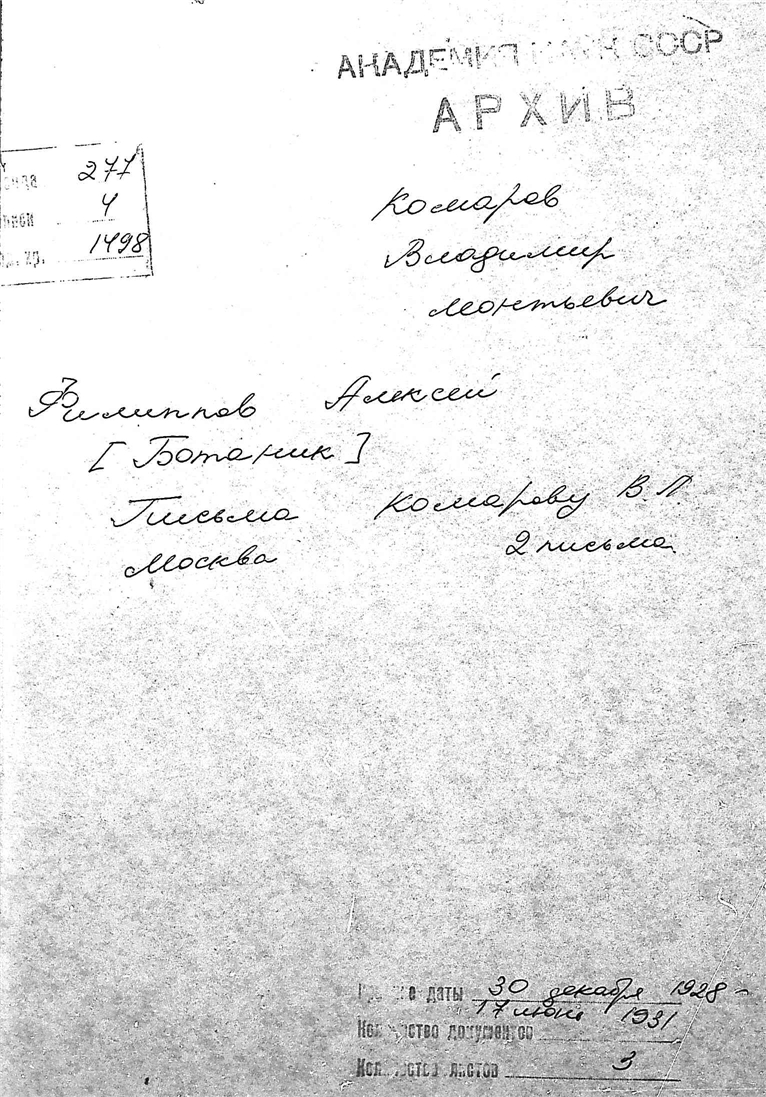 АКАДЕМИЯ НАУК СССР
АРХИВ
277
4
1498
Комаров
Владимир
Леонтьевич
Филиппов Алексей
[Ботаник]
Письма Комарову В.Л.
Москва 2 письма
даты 30 декабря 1928 -
17 июня 1931
Количество документов
Количество листов 3